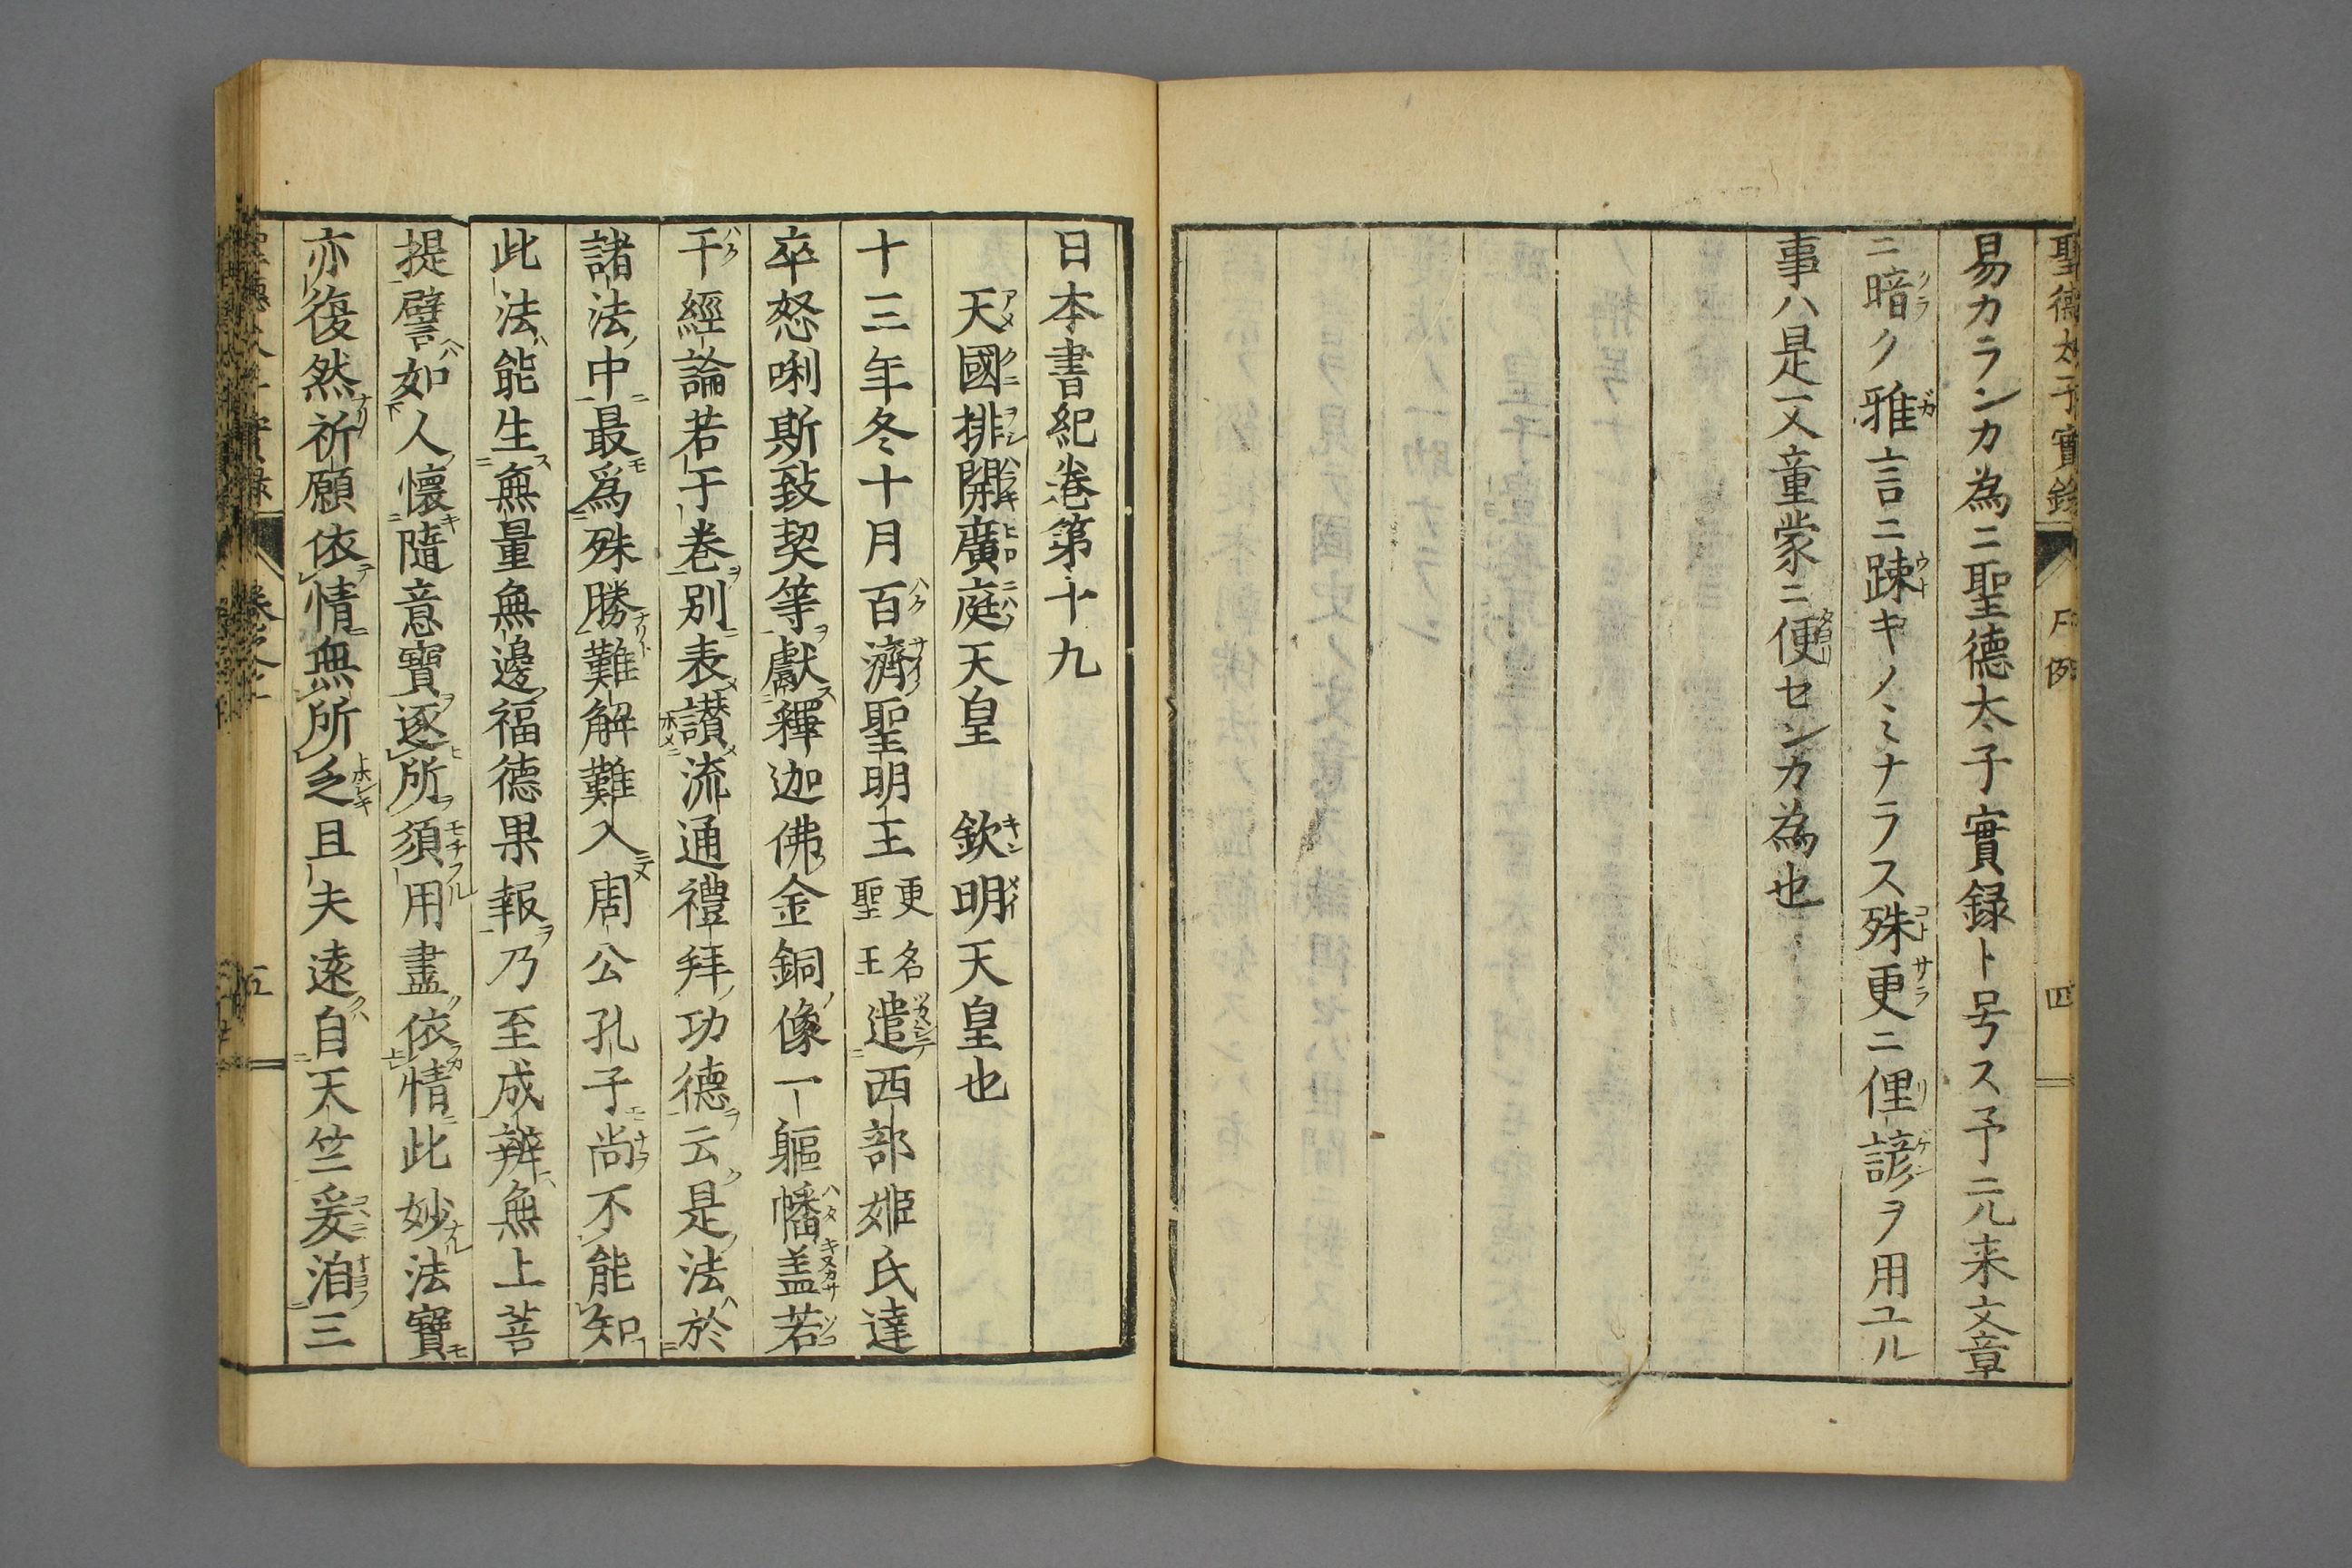 聖德太子實錄 凡例 四
易カランカ為ニ聖德太子實録ト号ス予元来文章
ニ暗ク雅言ニ踈キノミナラス殊更ニ俚諺ヲ用ユル
事ハ是又童蒙ニ便センカ為也
日本書紀卷第十九
天國排開廣庭天皇 欽明天皇也
十三年冬十月百濟聖明王更名聖王遣西部姫氏達
卒怒唎斯致契等獻釋迦佛金銅像一軀幡盖若
干經論若于卷別表讃流通禮拜功德云是法於
諸法中最爲殊勝難解難入周公孔子尚不能知
此法能生無量無邊福德果報乃至成辨無上菩
提譬如人懷隨意寶逐所須用盡依情此妙法寶
亦復然祈願依情無所乏且夫遠自天竺爰洎三